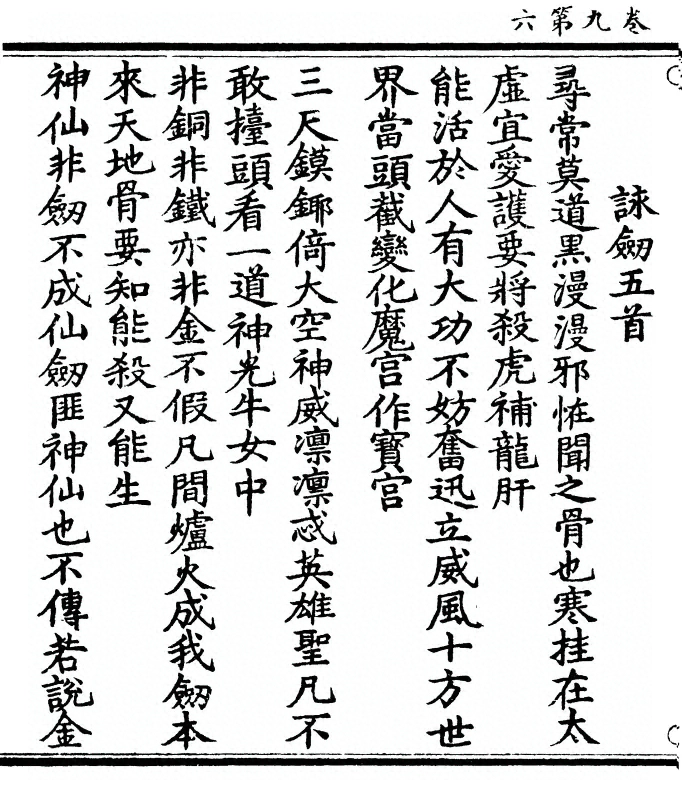 卷九第六
詠劒五首
尋常莫道黑漫漫邪恠聞之骨也寒挂在太
虛宜愛護要將殺虎補龍肝
能活於人有大功不妨奮迅立威風十方世
界當頭截變化魔宮作寶宮
三尺鏌鎁倚太空神威凛凛忒英雄聖凡不
敢擡頭看一道神光牛女中
非銅非鐵亦非金不假凡間爐火成我劒本
來天地骨要知能殺又能生
神仙非劒不成仙劒匪神仙也不傳若說金